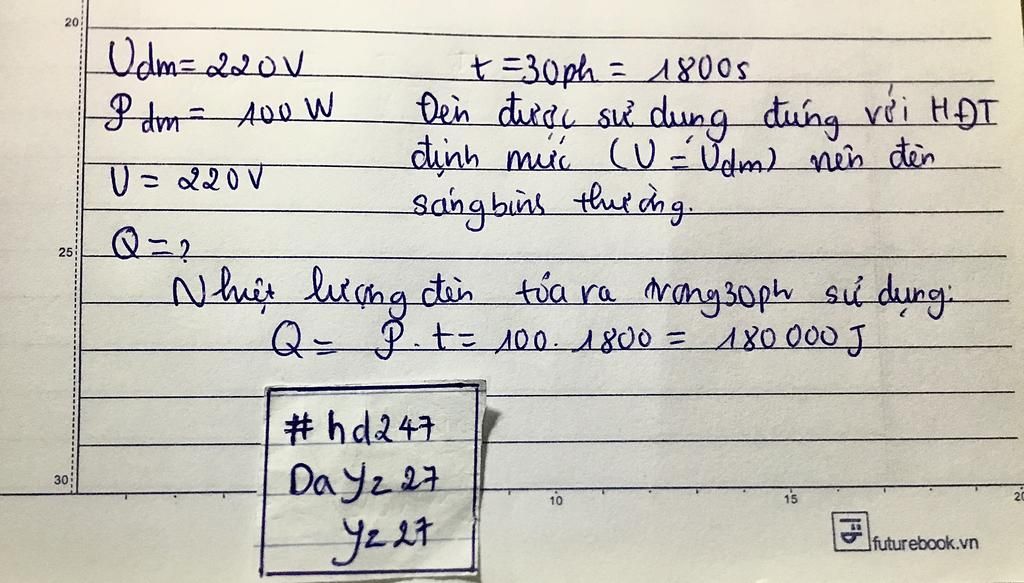 20
Uđm = 220V
t = 30ph = 1800s
Pđm = 100 W
Đèn được sử dụng đúng với HĐT
định mức (U = Uđm) nên đèn
U = 220V
sáng bình thường.
25
Q = ?
Nhiệt lượng đèn tỏa ra trong 30ph sử dụng:
Q = P . t = 100 . 1800 = 180 000 J
#hd247
Dayz27
yz27
30
10 15 20
futurebook.vn